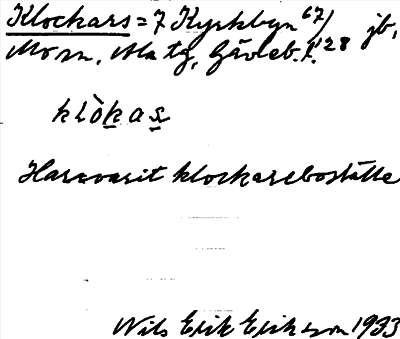 Klockars = 7 Kyrkbyn 67/ jb,
Mo sn, Ala tg, Gävleb. l. '28
klòkas
Har varit klockareboställe
Nils Erik Eriksson 1933